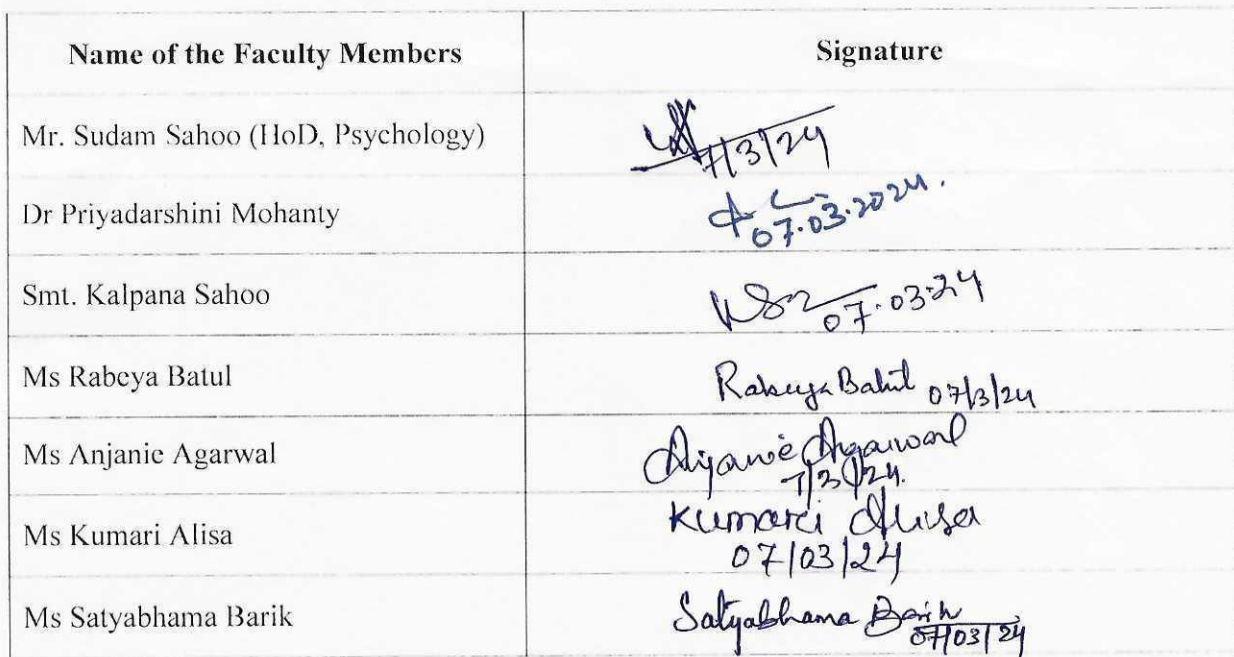 Name of the Faculty Members Signature
Mr. Sudam Sahoo (HoD, Psychology)
7/3/24
Dr Priyadarshini Mohanty
07.03.2024.
Smt. Kalpana Sahoo
07.03.24
Ms Rabeya Batul Rabeya Batul 07/3/24
Ms Anjanie Agarwal Anjanie Agarwal
7/3/24.
Ms Kumari Alisa Kumari Alisa
07/03/24
Ms Satyabhama Barik Satyabhama Barik
07/03/24